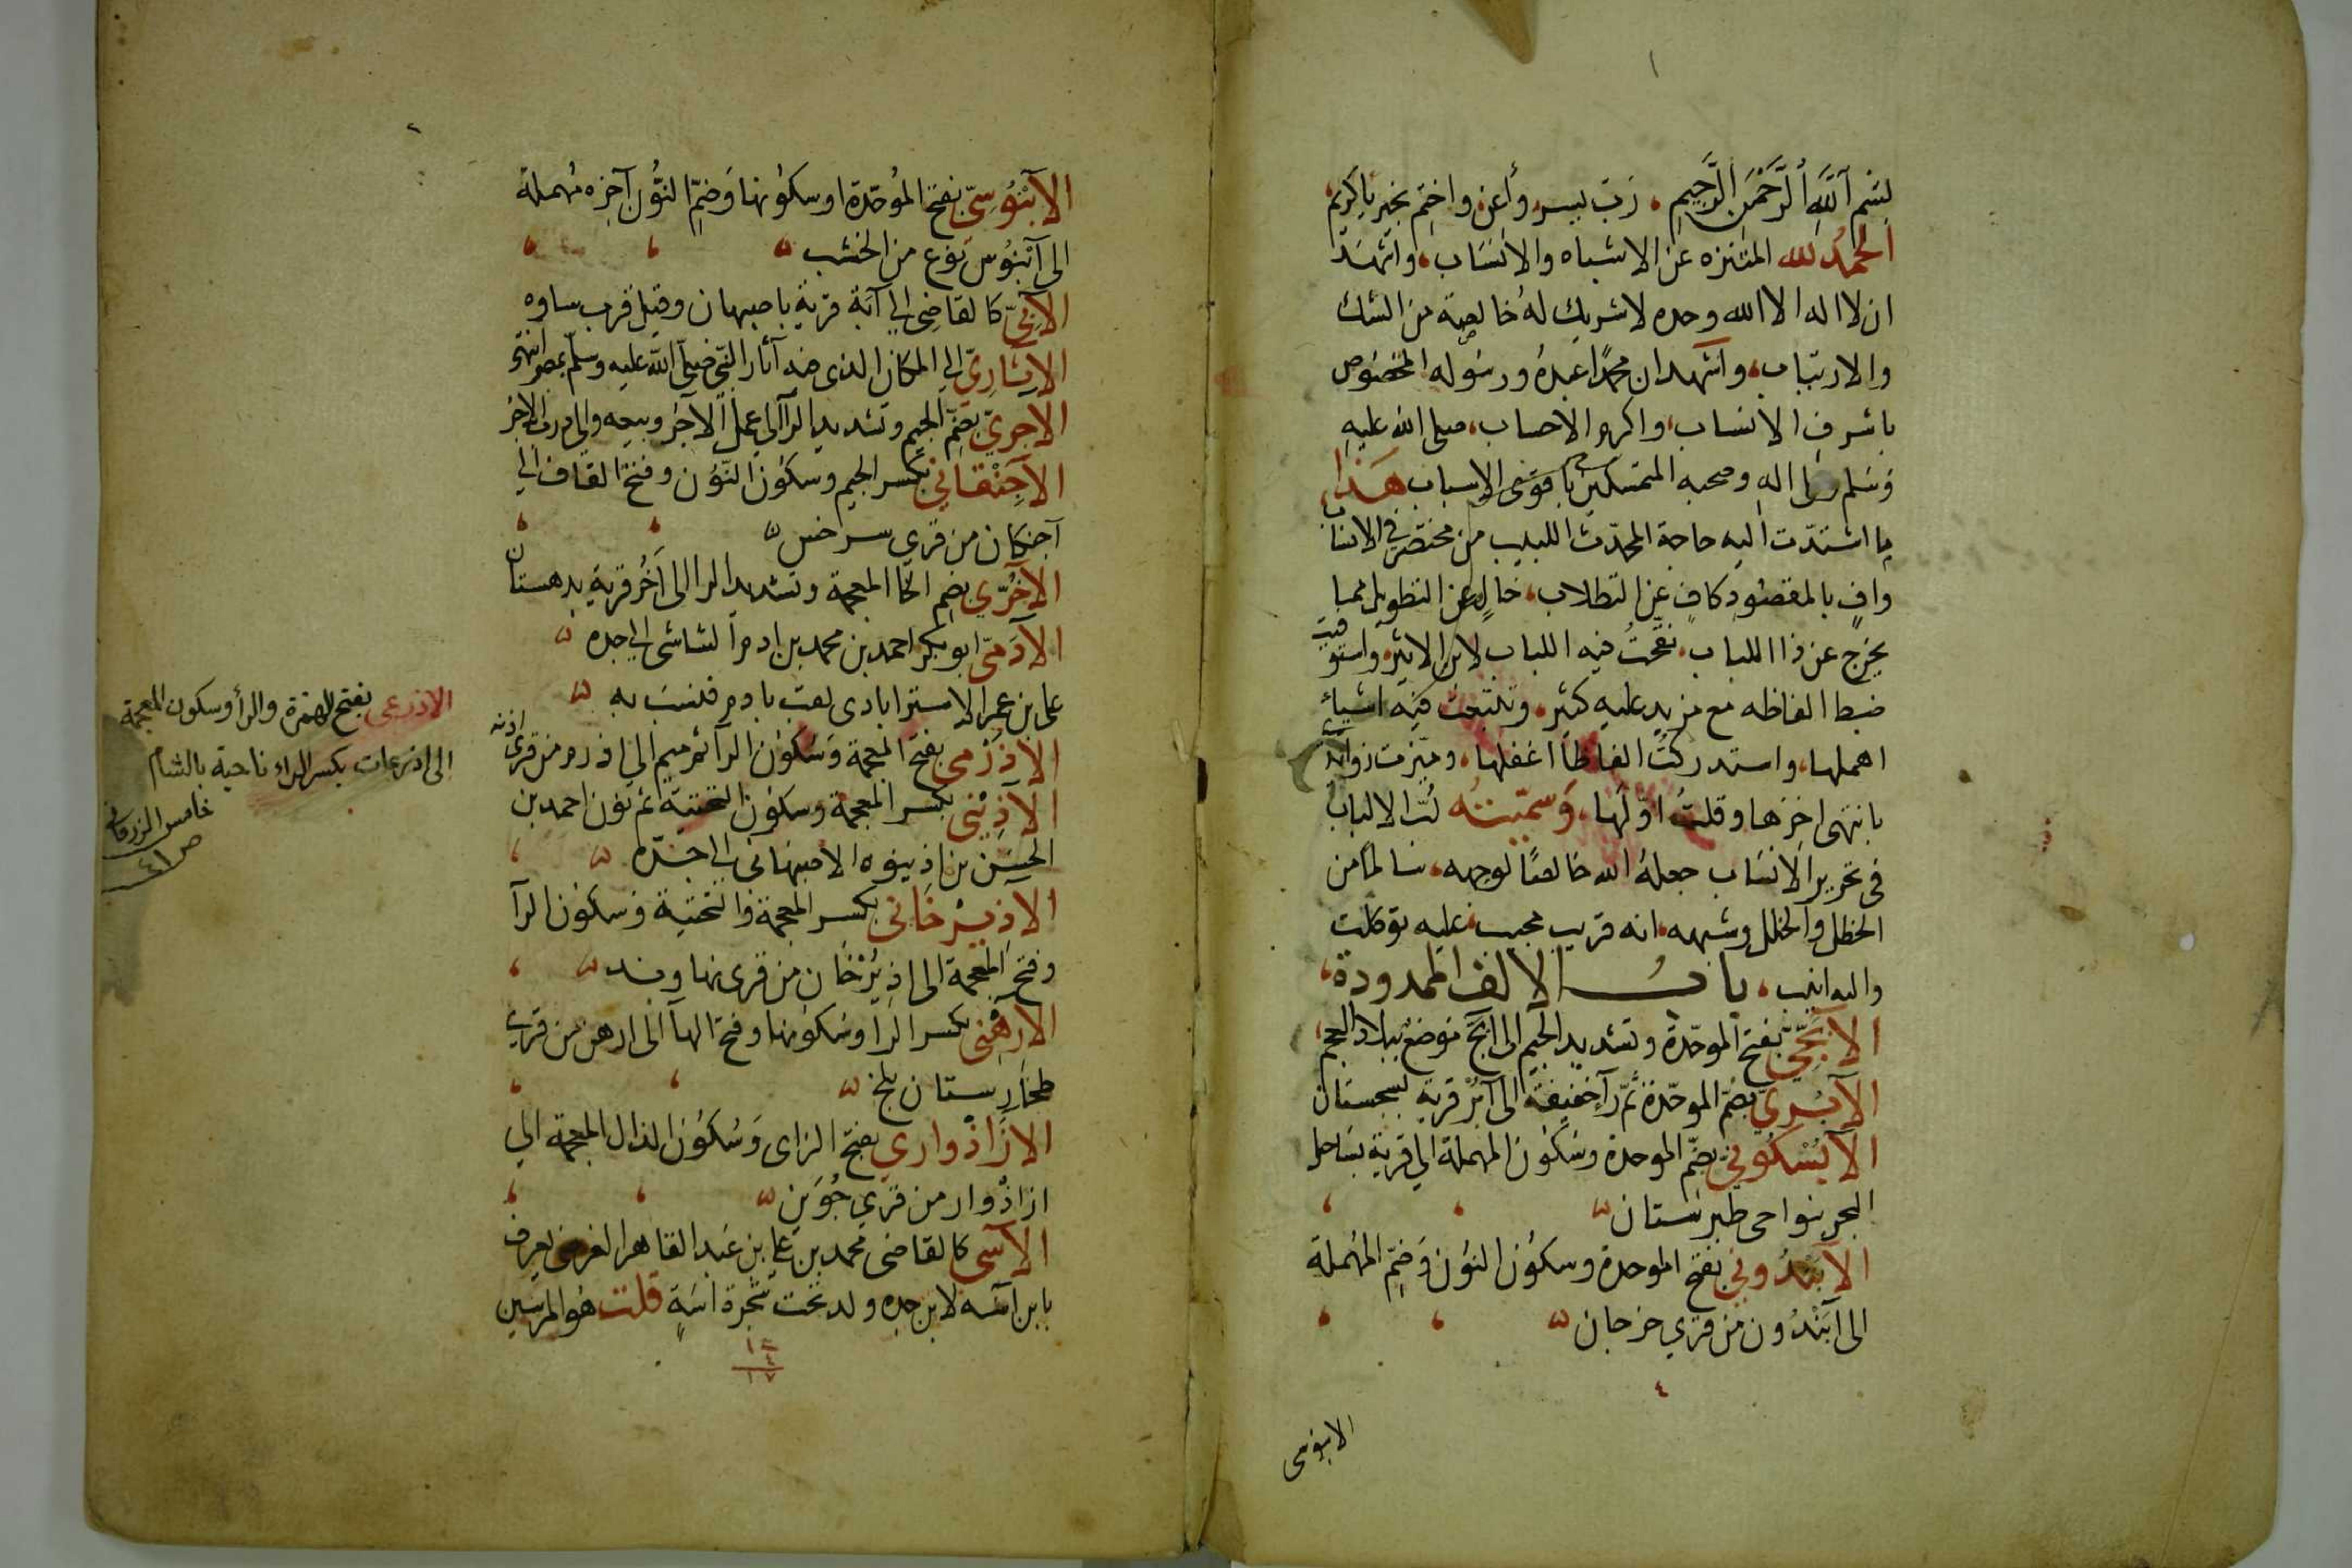 ١
بِسْمِ ٱللَّهِ ٱلرَّحْمَنِ ٱلرَّحِيمِ ، رَبّ يسر وأعن واختم بخير يا كريم
الحمدُ لله المتنزه عن الاشباه والانسَاب ، واشهَدُ
ان لا اله الا الله وحده لا شريك لهُ خالصة من الشك
والارتيَاب ، واشهد ان محمدًا عبدُه ورسُوله المخصُوص
باشرفِ الانسَاب ، واكرم الاحساب ، صلى الله عليهِ
وَسَلم وعلى اله وصحبه المتمسكين باقوَى الاسباب هَذا
ما اشتدّت اليه حاجة المحدّث اللبيب من مختصَر في الانسَاب
وافٍ بالمقصُودِ كافٍ عن التطلاب ، خالٍ عن التطويل مما
يخرج عن ذا اللباب ، نقحتُ فيه اللباب لابن الاثير ، واستوفيت
ضبط الفاظه مع مزيد عليهِ كثير ، وتتبعت فيه اشياء
اهملها ، واستدركتُ الفاظًا اغفلها ، وميّزت زوائده
بانتهى اخرَها وقلتُ اوّلَها ، وَسَمّيتُه لُبّ الالبابُ
في تحرير الانسَاب جعلهُ الله خالصًا لوجهه ، سَالمًا من
الخطل والخلل وشبهه ، انه قريب مجيب ، عليه توكلت
واليه انيب ، بابُ الالف الممدودة ،
الآبَجّيّ بفتح الموحّدة وتشديد الجيم الى آبَجّ موضعٌ ببلاد العجم ،
الآبُريّ بضمّ الموحّدة ثمّ رآء خفيفة الى آبُر قرية بسجستان
الآبُسْكُوني بضمّ الموحدة وسَكُون المهملة الى قرية بسَاحل
البحر بنواحى طبرستان
الآبَنْدُوني بفتح الموحدة وسكُون النوُن وَضمّ المُهملة
الى آبَنْدُون من قرى جرجان
٤
الابنوسى
٢
الآبَنُوسِيّ بفتح المُوحّدة او سكوُنها وَضمّ النُّون آخِره مُهملة
الى آبَنُوس نوع من الخشب
الآبىّ كالقاضِى الي آبَة قرية باصبهان وقيل قرب ساوه
الآثارِيّ الي المكان الذى فيه آثار النّبي صَلّى الله عليه وسلّم بمصر انتهى
الآجرّيّ بضمّ الجيم وتشديد الرآ الى عمل الآجُر وبيعه والي درب الآجر
الآجِنْقانى بكسر الجيم وسكُون النُّون وفتح القاف الي
آجنكان من قري سرخس
الآخُرّي بضمّ الخا المعجمة وتشديد الرا الى آخُر قرية بدهستان
الآدَمىّ ابو بكر احمد بن محمد بن ادم الشاشى الى جده
على بن عمر الاستراباذى لعب بادم فنسَب به
الآذَرْمى بفتح المعجمة وسُكُون الرآ ثم ميم الى اذرم من قرى اذنه
الآذِيْنى بكسر المعجمة وسكون التحتية ثم نون احمد بن
الحسَن بن اذينوه الاصبهانى الى جَدّه
الآذِيْرخَانى بكسر المعجمة والتحتية وَسكُون الرآ
وفتح المعجمة الى اذِيْرْخَان من قرى نهاوند
الآرهَنى بكسر الرآ وسُكونها وفتح الهآ الى ارهن من قرى
طخارِستان بلخ
الازَاذْوارى بفتح الزاى وَسُكُون الذال المعجمة الى
ازاذْوار من قري جُوَين
الآسى كالقاضى محمد بن على بن عَبد القاهر الفرضى يعرف
بابن آسَه لان جده ولد تحت شجرة آسَةٍ قلت هُو المرسين
١٤
٤
١٧
الاذرعى بفتح الهمزة والرأ وسكون المعجمة
الى اذرعات بكسر الراء ناحية بالشام
خامس الزرقانى
ص ٤١